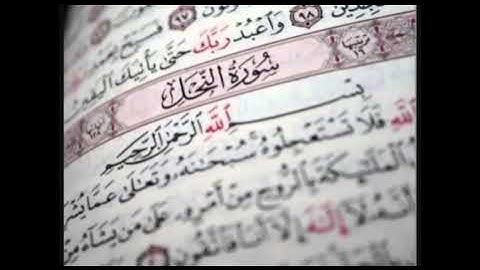 ٩٧ فَسَبِّحْ
٩٨ وَٱعْبُدْ رَبَّكَ حَتَّىٰ يَأْتِيَكَ ٱلْيَقِينُ
ترتيبها ١٦ سُورَةُ النَّحْلِ
بِسْمِ ٱللَّهِ ٱلرَّحْمَٰنِ ٱلرَّحِيمِ
ٱللَّهِ فَلَا تَسْتَعْجِلُوهُ سُبْحَٰنَهُۥ وَتَعَٰلَىٰ عَمَّا
ٱلْمَلَٰٓئِكَةَ بِٱلرُّوحِ مِنْ أَمْرِهِۦ عَلَىٰ مَن يَشَآءُ مِنْ
أَنَّهُۥ لَآ إِلَٰهَ إِلَّآ أَنَا۠ فَٱتَّقُونِ